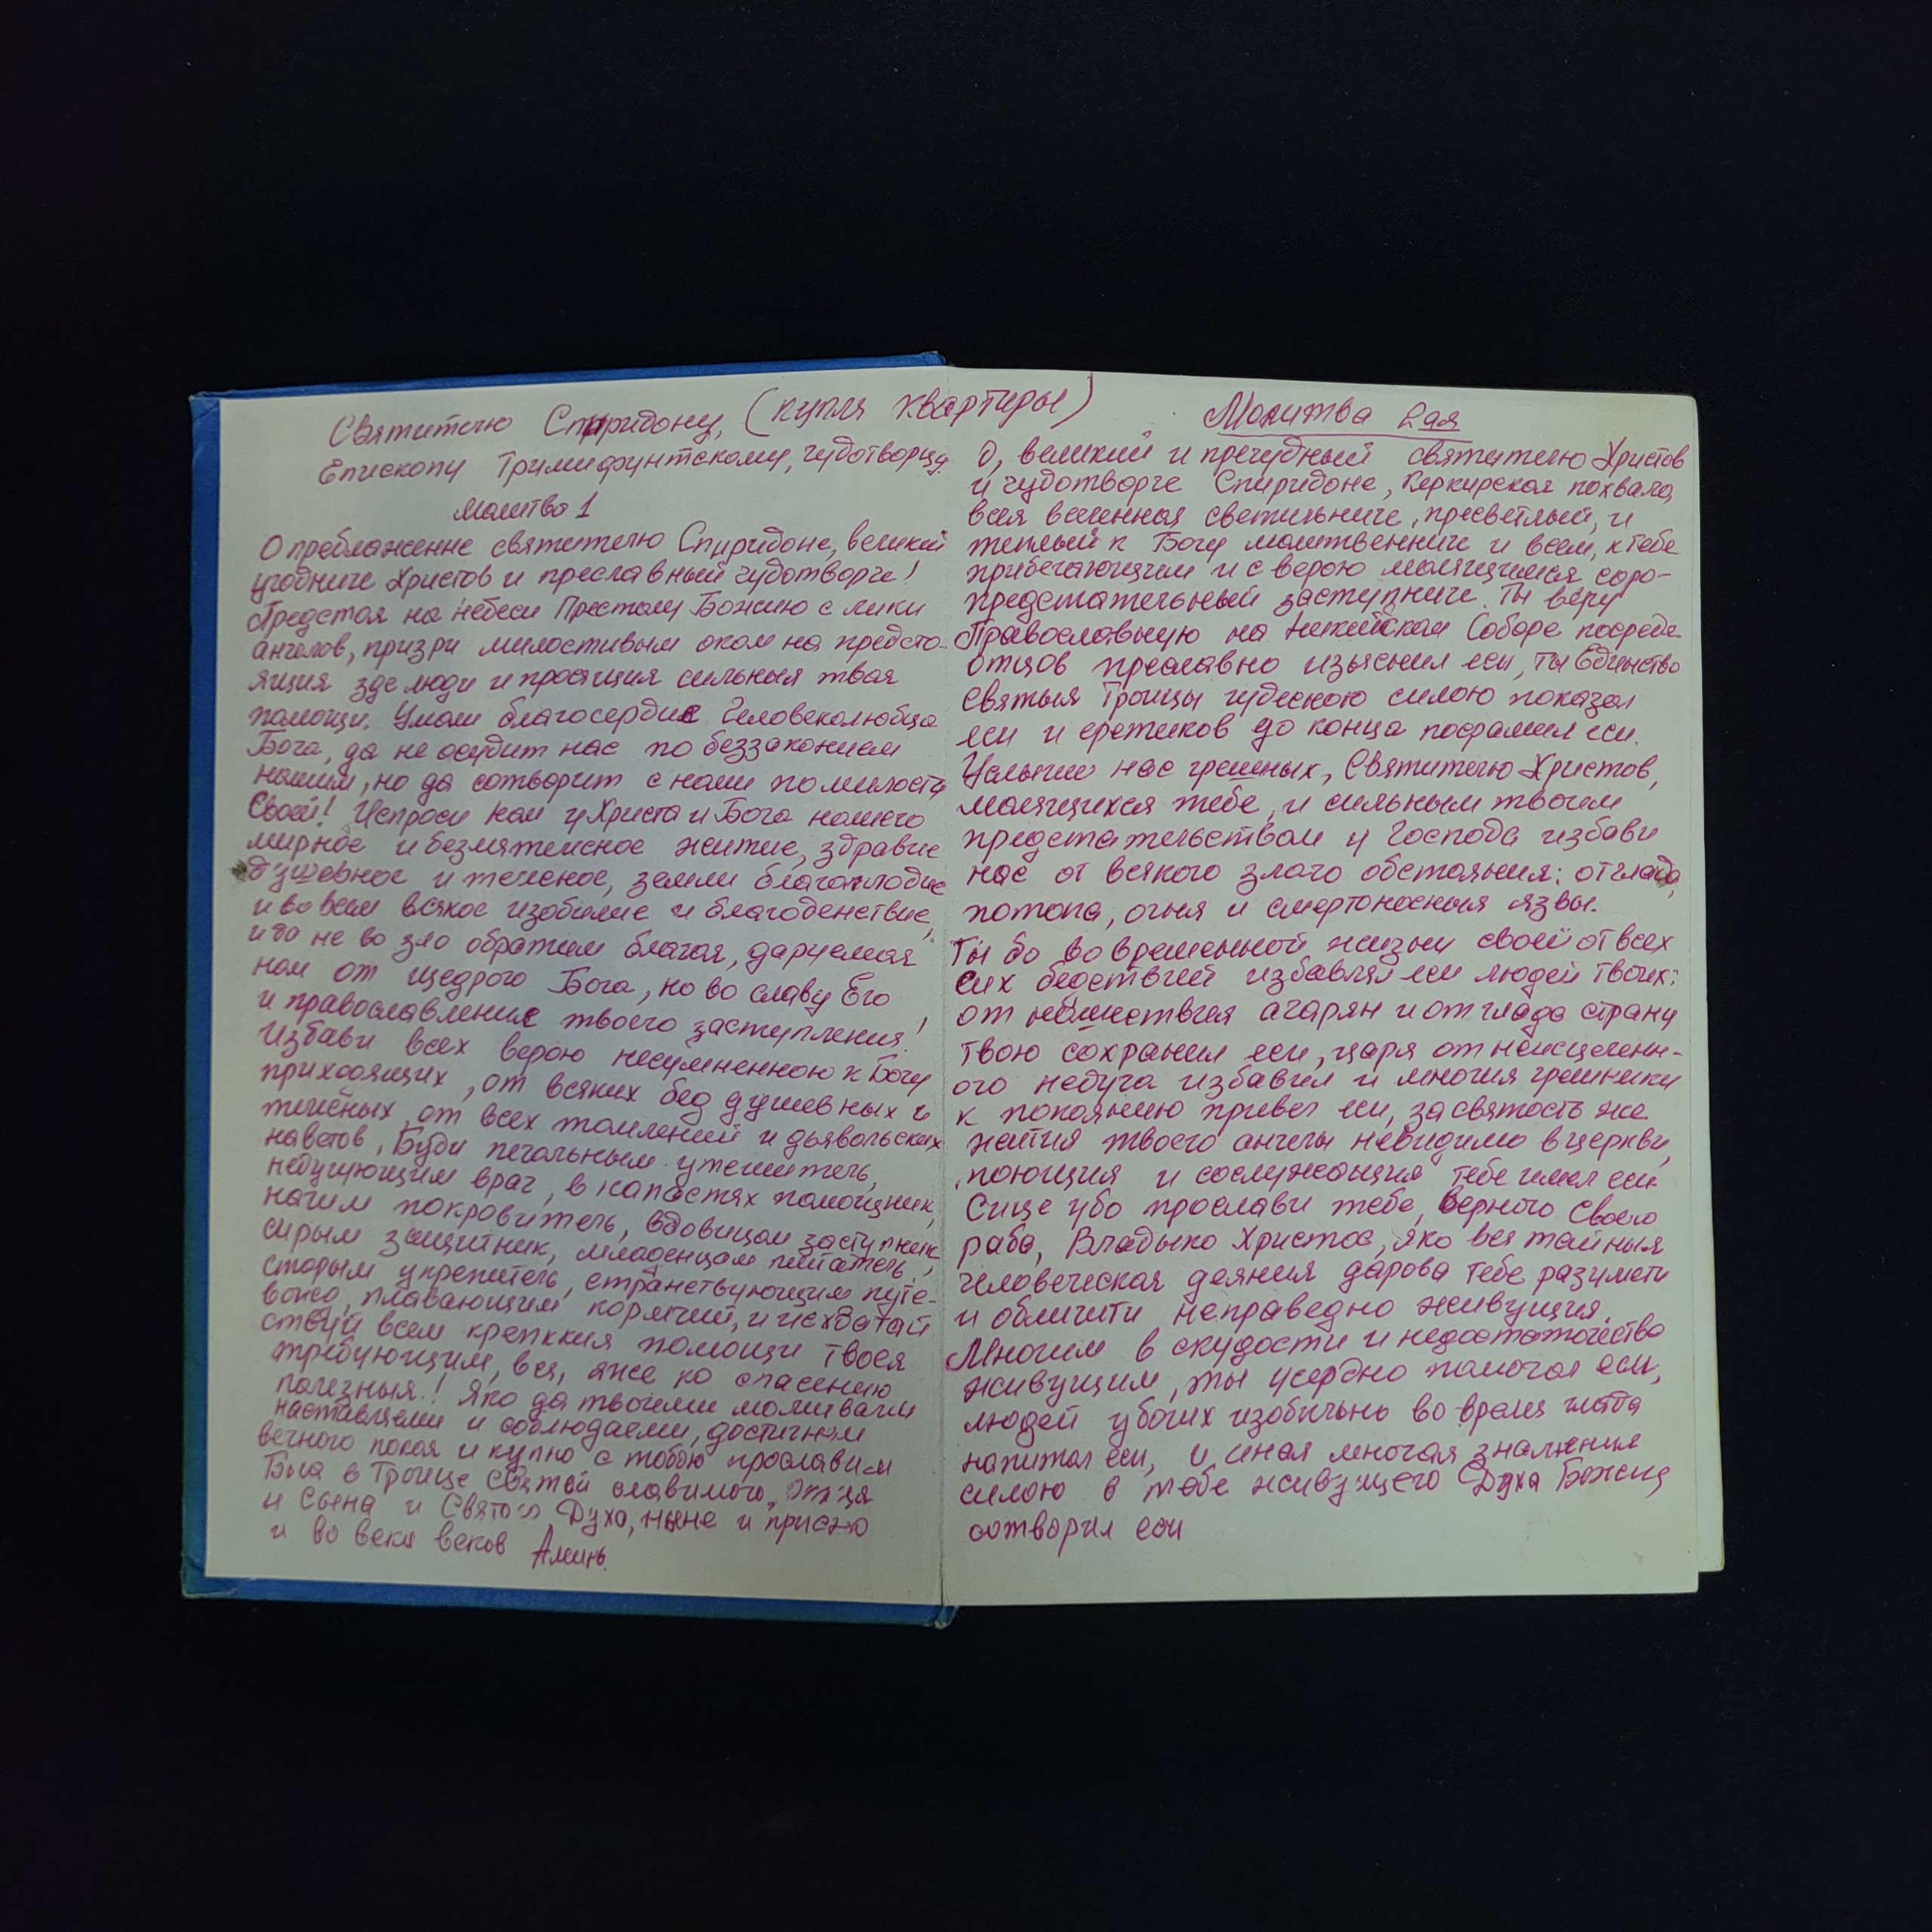 Святителю Спиридону, (купля квартиры)
Епископу Тримифунтскому, чудотворцу.
Молитва 1
О преблаженне святителю Спиридоне, великий
угодниче Христов и преславный чудотворче!
Предстоя на небеси Престолу Божию с лики
ангелов, призри милостивым оком на предсто-
ящия зде люди и просящия сильныя твоя
помощи. Умоли благосердие Человеколюбца
Бога, да не осудит нас по беззаконием
нашим, но да сотворит с нами по милости
Своей! Испроси нам у Христа и Бога нашего
мирное и безмятежное житие, здравие
душевное и телесное, земли благоплодие
и во всем всякое изобилие и благоденствие,
и да не во зло обратим благая, даруемая
нам от щедрого Бога, но во славу Его
и православление твоего заступления!
Избави всех верою несумненною к Богу
приходящих, от всяких бед душевных и
телесных, от всех томлений и дьявольских
наветов, Буди печальным утешитель,
недугующим врач, в напастях помощник,
нагим покровитель, вдовицам заступник,
сирым защитник, младенцам питатель,
старым укрепитель, странствующим путе-
вождь, плавающим кормчий, и исхдатай
ствуй всем крепккия помощи твоея
требующим, вся, яже ко спасению
полезныя! Яко да твоими молитвами
наставляеми и соблюдаеми, достигнем
вечного покоя и купно с тобою прославим
Бога в Троице Святей славимого, Отца
и Сына и Святого Духа, ныне и присно
и во веки веков Аминь.
Молитва 2ая
О, великий и пречудный святителю Христов
и чудотворче Спиридоне, Керкирская похвало,
всея вселенныя светильниче, пресветлый, и
теплый к Богу молитвенниче и всем, к тебе
прибегающим и с верою молящимся, соро-
предстательный заступниче. Ты веру
Православную на Никейском Соборе посреде
отцов преславно изъяснил еси, ты Единство
святыя Троицы чудесною силою показал
еси и еретиков до конца посрамил еси.
Услыши нас грешных, Святителю Христов,
молящихся тебе, и сильным твоим
предстательством у Господа избави
нас от всякого злаго обстояния: от глада,
потопа, огня и смертоносныя язвы.
Ты бо во временной жизни своей от всех
сих бедствий избавлял еси людей твоих:
от нашествия агарян и от глада страну
твою сохранил еси, царя от неисцеленн-
ого недуга избавил и многия грешники
к покоянию привел еси, за святость же
жития твоего ангелы невидимо в церкви,
поющия и сослужащия тебе имел еси
Сице убо прослави тебе, верного своего
раба, Владыко Христос, яко вся тайныя
человеческая деяния дарова тебе разумети
и обличити неправедно живущия.
Многим в скудости и недостаточестве
живущим, ты усердно помогал еси,
людей убогих изобильно во время глада
напитал еси, и иная многая знамения
силою в тебе живущего Духа Божия
сотворил еси